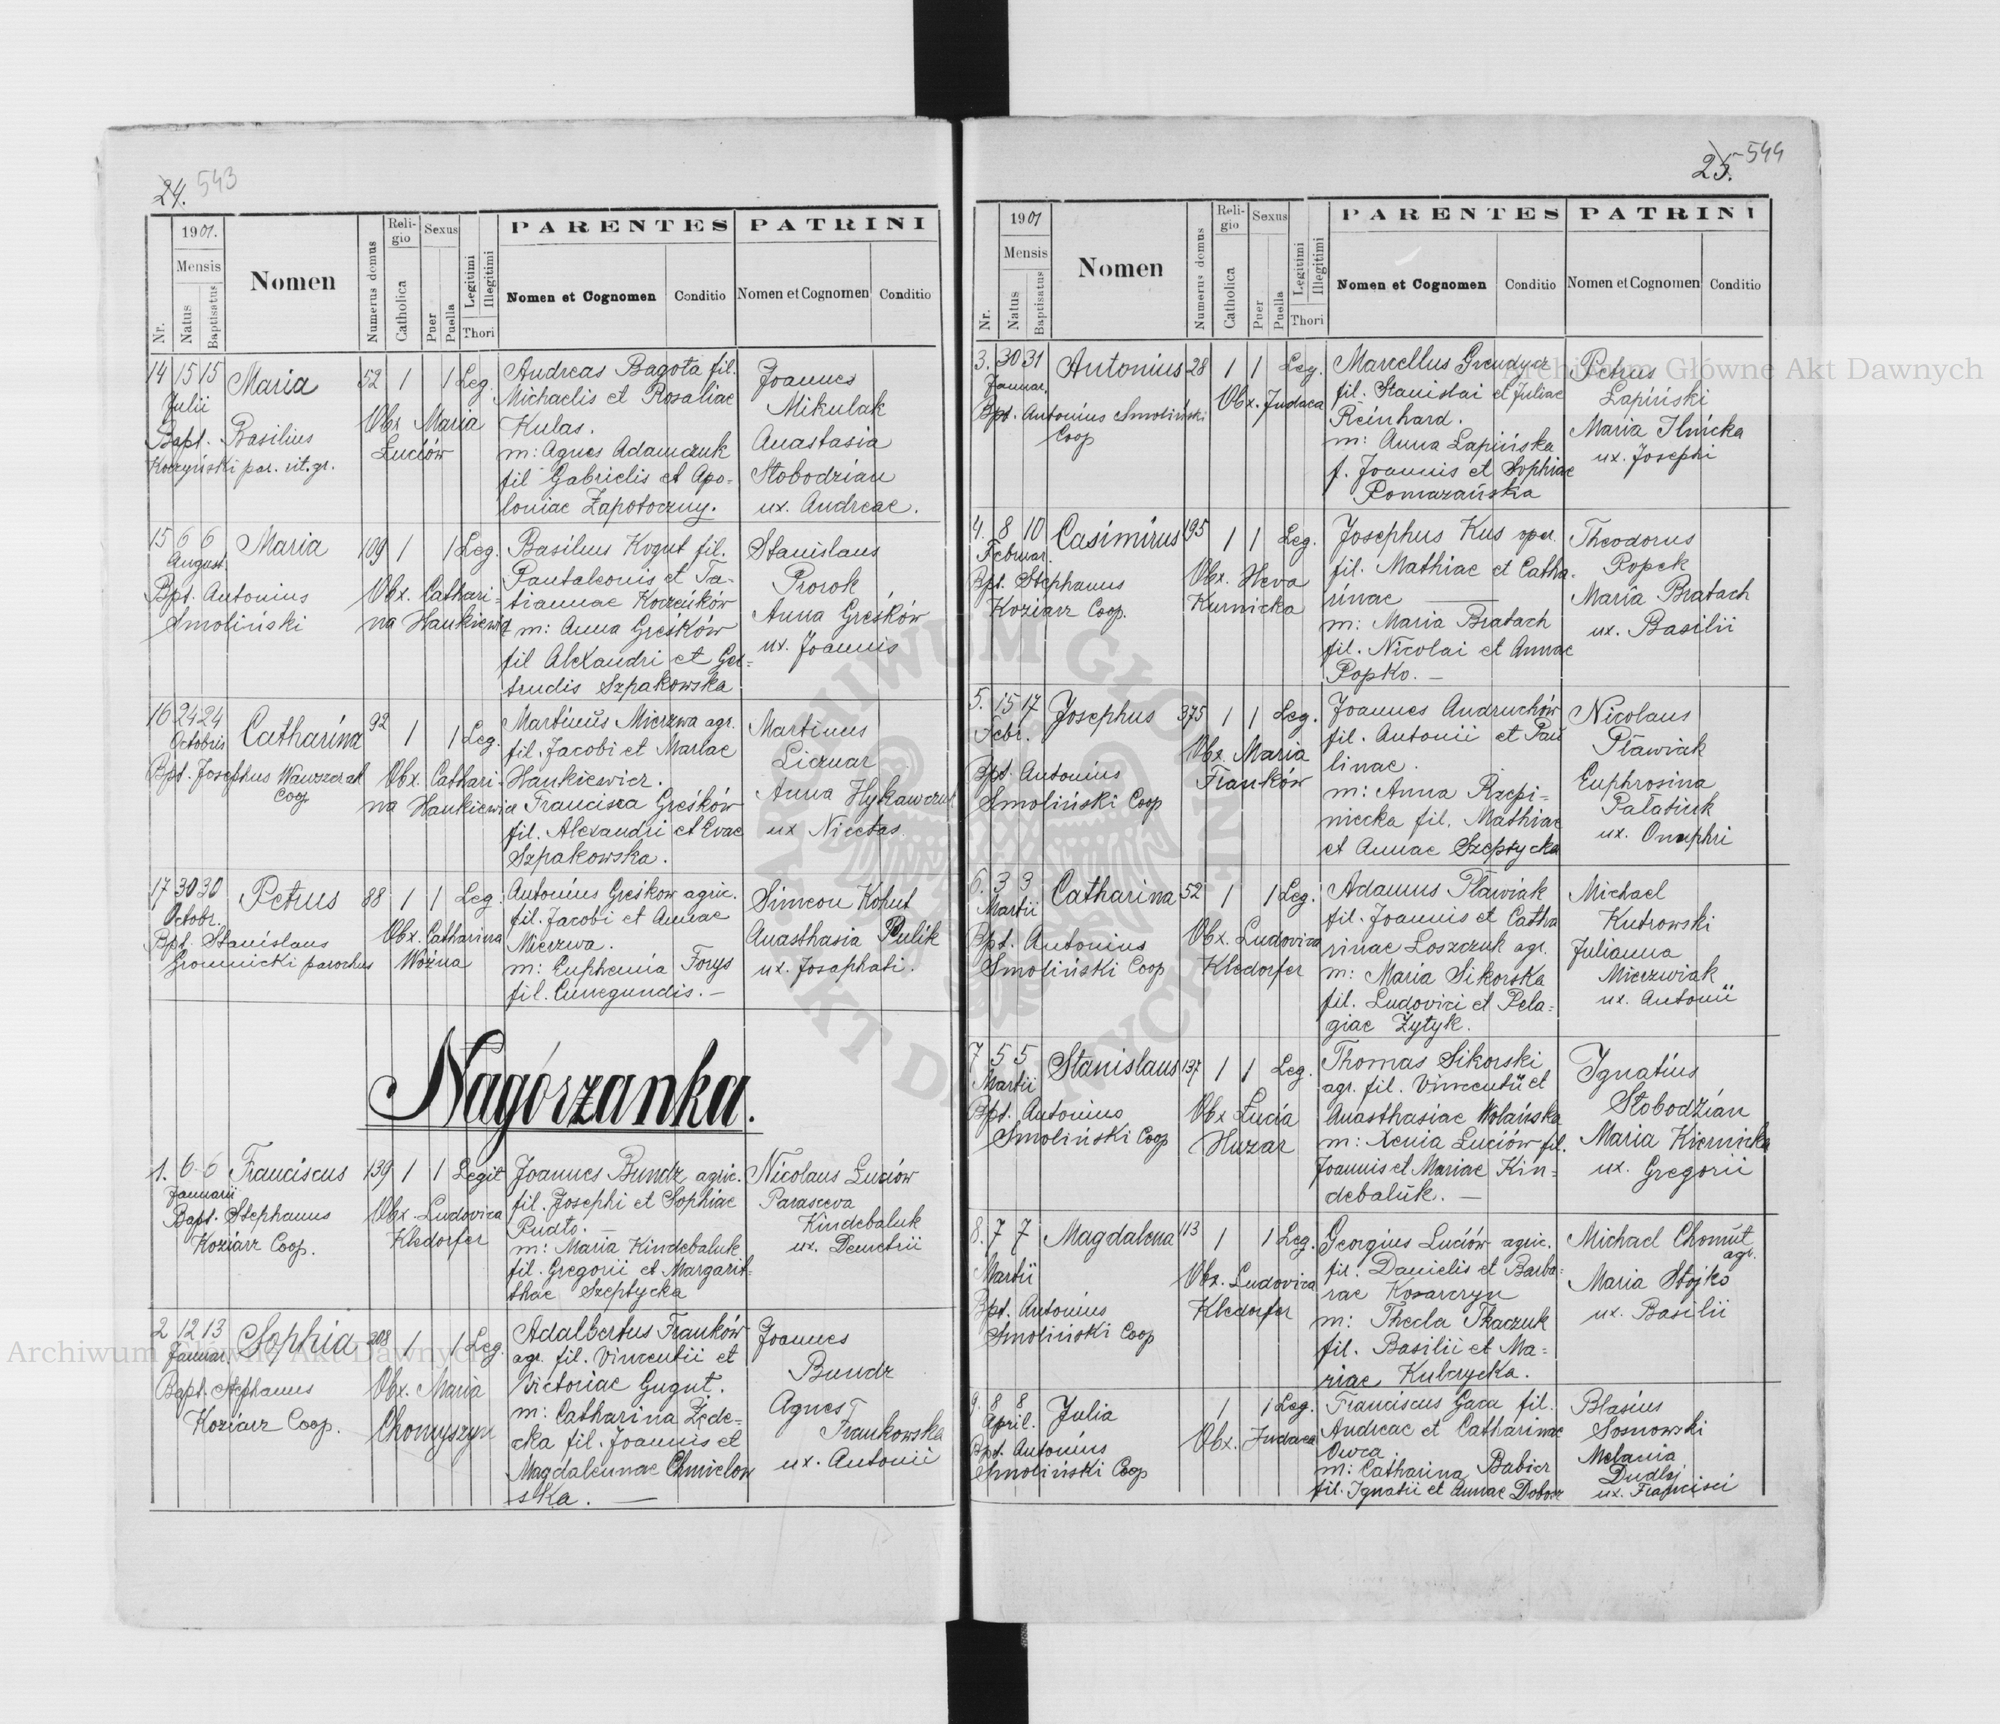 24. 543
1901.
Mensis
Nr.
Natus
Baptisatus
Nomen
Numerus domus
Religio
Catholica
Sexus
Puer
Puella
Legitimi
Illegitimi
Thori
PARENTES
Nomen et Cognomen
Conditio
PATRINI
Nomen et Cognomen
Conditio
14 15 15 Maria 52 1 1 Leg.
Julii
Bapt. Basilius
Korzyński par. rit. gr.
Obx Maria
Luciów
Andreas Bagota fil.
Michaelis et Rosaliae
Kulas.
m: Agnes Adamczuk
fil Gabrielis et Apo-
loniae Zapotoczny.
Joannes
Mikulak
Anastasia
Stobodzian
ux. Andreae.
15 6 6 Maria 109 1 1 Leg.
August.
Bpt. Antonius
Smoliński
Obx. Cathari-
na Hankiewicz
Basilius Kogut fil.
Pantaleonis et Ta-
tiannae Korzeńków
m: Anna Greśków
fil Alexandri et Ger-
trudis Szpakowska
Stanislaus
Prorok
Anna Greśków
ux. Joannis
16 24 24 Catharina 92 1 1 Leg.
Octobris
Bpt. Josephus Wawszczak
Coop
Obx. Cathari-
na Hankiewicz
Martinus Mierzwa agr.
fil. Jacobi et Mariae
Hankiewicz.
Francisca Greśków
fil. Alexandri et Evae
Szpakowska.
Martinus
Licznar
Anna Hykawczuk
ux Nicetas
17 30 30 Petrus 88 1 1 Leg.
Octobr.
Bpt. Stanislaus
Gromnicki parochus
Obx. Catharina
Woźna
Antonius Greśkow agric.
fil. Jacobi et Annae
Mierzwa.
m: Euphemia Forys
fil. Cunegundis. —
Simeon Kohut
Anasthasia Pulik
ux. Josaphati.
Nagórzanka.
1. 6 6 Franciscus 139 1 1 Legit
Januarii
Bapt. Stephanus
Koziarz Coop.
Obx. Ludovica
Kledorfer
Joannes Bundz agric.
fil. Josephi et Sophiae
Pudto. —
m: Maria Kindebaluk
fil. Gregorii et Margari-
thae Szeptycka
Nicolaus Luciów
Parasceva
Kindebaluk
ux. Demetrii
2 12 13 Sophia 208 1 1 Leg.
Januar.
Bapt. Stephanus
Koziarz Coop.
Obx. Maria
Chomyszyn
Adalbertus Franków
agr. fil. Vincentii et
Victoriae Gugut.
m: Catharina Zede-
cka fil. Joannis et
Magdalennae Chmielow
ska. —
Joannes
Bundz
Agnes
Frankowska
ux. Antonii
25. 544
1901
Mensis
Nr.
Natus
Baptisatus
Nomen
Numerus domus
Religio
Catholica
Sexus
Puer
Puella
Legitimi
Illegitimi
Thori
PARENTES
Nomen et Cognomen
Conditio
PATRINI
Nomen et Cognomen
Conditio
3. 30 31 Antonius 28 1 1 Leg.
Januar.
Bpt. Antonius Smoliński
Coop
Obx. Judaea
Marcellus
fil. Stanislai et Juliae
Reinhard.
m: Anna Lapińska
f. Joannis et Sophiae
Pomazańska
Petrus
Lapiński
Maria Ilnicka
ux. Josephi
4. 8 10 Casimirus 195 1 1 Leg.
Februar.
Bpt. Stephanus
Koziarz Coop.
Obx. Heva
Kurnicka
Josephus Kus oper.
fil. Mathiae et Catha.
rinae —
m: Maria Bratach
fil. Nicolai et Annae
Popko. —
Theodorus
Popek
Maria Bratach
ux. Basilii
5. 15 17 Josephus 375 1 1 Leg.
Febr.
Bpt. Antonius
Smoliński Coop
Obx. Maria
Franków
Joannes Andruchów
fil. Antonii et Pau
linae.
m: Anna Rzepi-
niecka fil. Mathiae
et Annae Szeptycka
Nicolaus
Pławiak
Euphrosina
Pałatiuk
ux. Onuphri
6. 3 3 Catharina 52 1 1 Leg.
Martii
Bpt. Antonius
Smoliński Coop
Obx. Ludovica
Kledorfer
Adamus Pławiak
fil. Joannis et Catha
rinae Loszczuk agr.
m: Maria Sikorska
fil. Ludovici et Pela-
giae Żytyk.
Michael
Kutrowski
Julianna
Mierzwiak
ux. Antonii
7 5 5 Stanislaus 137 1 1 Leg.
Martii
Bpt. Antonius
Smoliński Coop
Obx Lucia
Huzar
Thomas Sikorski
agr. fil. Vincentii et
Anasthasiae Wolańska
m: Xenia Luciów fil.
Joannis et Mariae Kin-
debaluk. —
Ignatius
Stobodzian
Maria Kiernicka
ux. Gregorii
8. 7 7 Magdalena 113 1 1 Leg.
Martii
Bpt. Antonius
Smoliński Coop
Obx. Ludovica
Kledorfer
Georgius Luciów agric.
fil. Danielis et Barba-
rae Kosarczyn
m: Thecla Tkaczuk
fil. Basilii et Ma-
riae Kubrycka.
Michael Chomut
agr.
Maria Stojko
ux. Basilii
9. 8 8 Julia 1 1 Leg.
April.
Bpt. Antonius
Smoliński Coop
Obx. Judaea
Franciscus Gaca fil.
Andreae et Catharinae
Owca
m: Catharina Babicz
fil. Ignatii et Annae Dobosz
Blasius
Sosnowski
Melania
Dudlej
ux. Francisci
Archiwum Główne Akt Dawnych
Archiwum Główne Akt Dawnych
ARCHIWUM GŁÓWNE AKT DAWNYCH